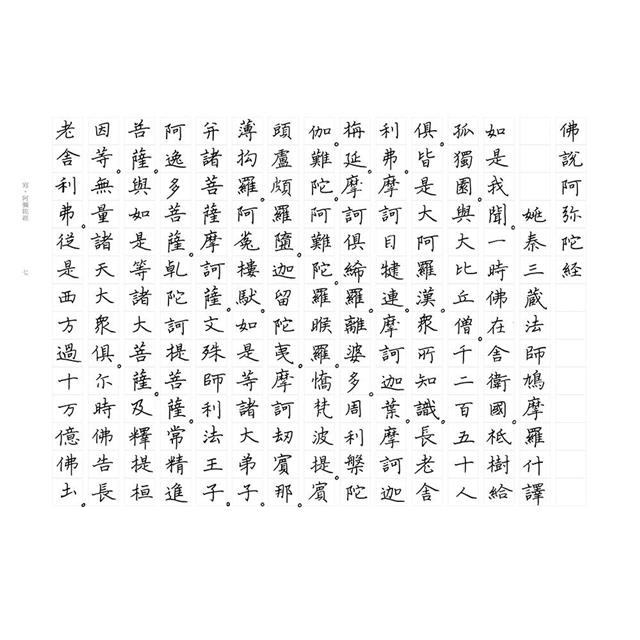 佛說阿弥陀経
姚秦三蔵法師鳩摩羅什譯
如是我聞。一時佛在舍衛國。祗樹給
孤獨園。與大比丘僧。千二百五十人
俱。皆是大阿羅漢。衆所知識。長老舍
利弗。摩訶目犍連。摩訶迦葉。摩訶迦
栴延。摩訶俱絺羅。離婆多。周利槃陀
伽。難陀。阿難陀。羅睺羅。憍梵波提。賓
頭盧頗羅墮。迦留陀夷。摩訶劫賓那。
薄拘羅。阿㝹樓馱。如是等諸大弟子。
并諸菩薩摩訶薩。文殊師利法王子。
阿逸多菩薩。乹陀訶提菩薩。常精進
菩薩。與如是等諸大菩薩。及釋提桓
因等。無量諸天大衆俱。尓時佛告長
老舍利弗。従是西方過十万億佛土。
寫・阿彌陀經
七